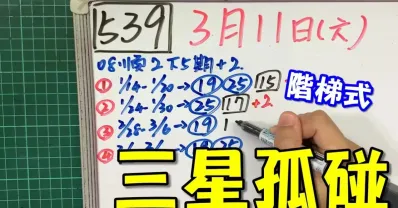 539 3月11日(六)
08順2下5期+2
① 1/14-1/20→19 25 15
② 1/24-1/30→25 17 +2
③ 2/28-3/6→19 1
④
階梯式
三星孤碰